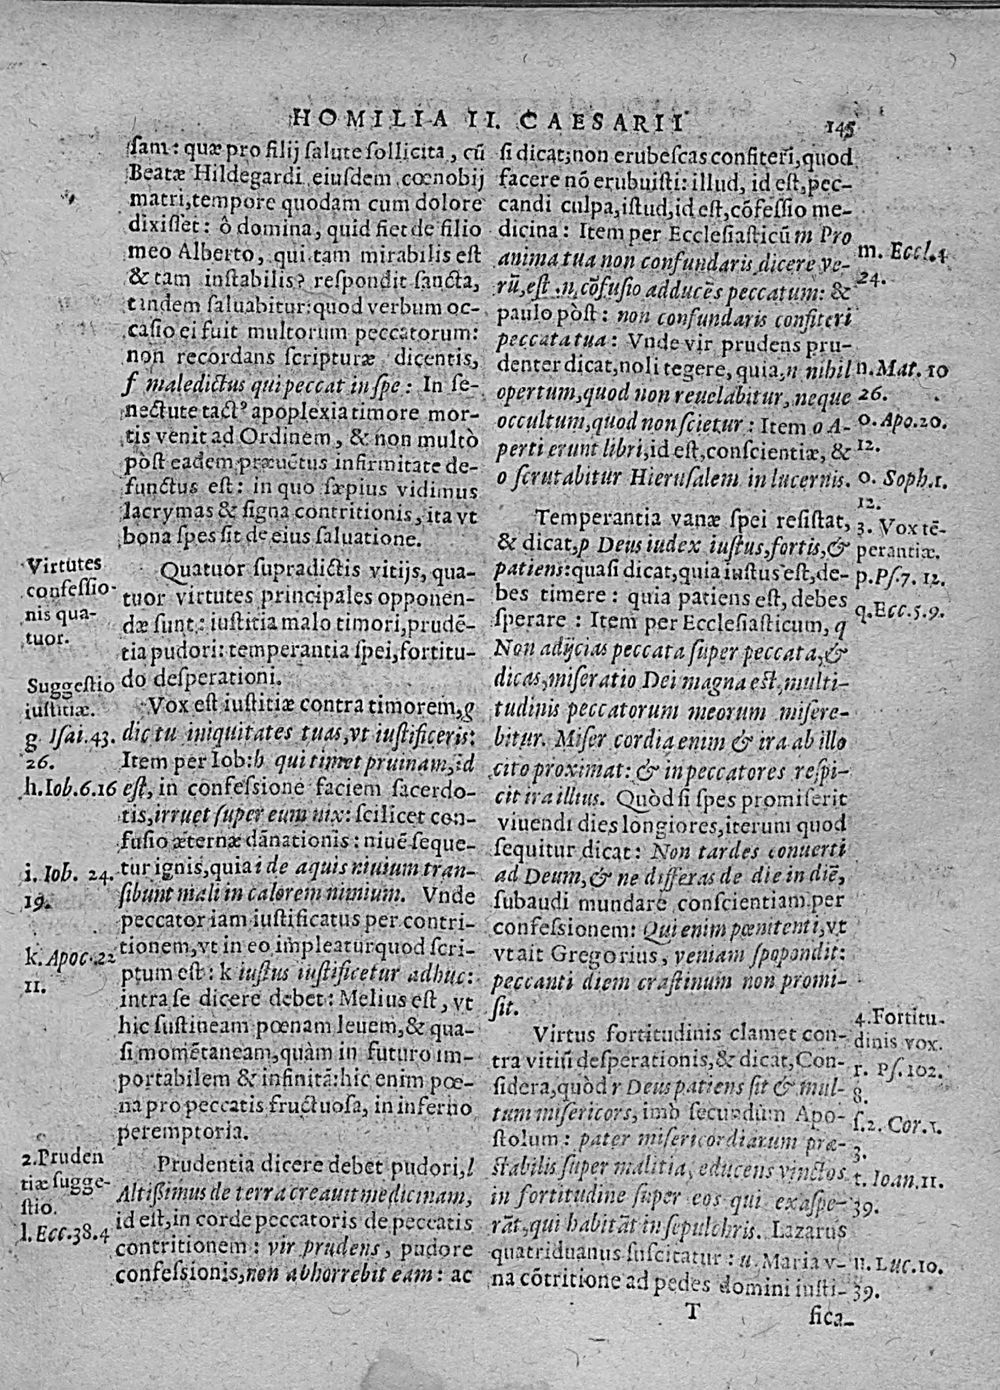 HOMILIA II. CAESARII
145
sam: quæ pro filij salute sollicita, cū
Beatæ Hildegardi eiusdem cœnobij
matri, tempore quodam cum dolore
dixisset: ô domina, quid fiet de filio
meo Alberto, qui tam mirabilis est
& tam instabilis? respondit sancta,
tandem saluabitur: quod verbum oc-
casio ei fuit multorum peccatorum:
non recordans scripturæ dicentis,
f maledictus qui peccat in spe: In se-
nectute tactꝰ apoplexia timore mor-
tis venit ad Ordinem, & non multò
pòst eadem præuētus infirmitate de-
functus est: in quo sæpius vidimus
lacrymas & signa contritionis, ita vt
bona spes sit de eius saluatione.
Quatuor supradictis vitijs, qua-
tuor virtutes principales opponen-
dæ sunt: iustitia malo timori, prudē-
tia pudori: temperantia spei, fortitu-
do desperationi.
Vox est iustitiæ contra timorem, g
dic tu iniquitates tuas, vt iustificeris:
Item per Iob: h qui timet pruinam, id
est, in confessione faciem sacerdo-
tis, irruet super eum nix: scilicet con-
fusio æternæ dānationis: niuē seque-
tur ignis, quia i de aquis niuium tran-
sibunt mali in calorem nimium. Vnde
peccator iam iustificatus per contri-
tionem, vt in eo impleatur quod scri-
ptum est: k iustus iustificetur adhuc:
intra se dicere debet: Melius est, vt
hic sustineam pœnam leuem, & qua-
si momētaneam, quàm in futuro im-
portabilem & infinitā: hic enim pœ-
na pro peccatis fructuosa, in inferno
peremptoria.
Prudentia dicere debet pudori, l
Altissimus de terra creauit medicinam,
id est, in corde peccatoris de peccatis
contritionem: vir prudens, pudore
confessionis, non abhorrebit eam: ac
Virtutes
confessio-
nis qua-
tuor.
Suggestio
iustitiæ.
g Isai. 43.
26.
h. Iob. 6. 16
i. Iob. 24.
19.
k. Apoc. 22
11.
2. Pruden
tiæ sugge-
stio.
l. Ecc. 38. 4
si dicat; non erubescas confiteri, quod
facere nō erubuisti: illud, id est, pec-
candi culpa, istud, id est, cōfessio me-
dicina: Item per Ecclesiasticū m Pro
anima tua non confundaris dicere ve-
rū, est .n. cōfusio adducēs peccatum: &
paulo pòst: non confundaris confiteri
peccata tua: Vnde vir prudens pru-
denter dicat, noli tegere, quia, n nihil
opertum, quod non reuelabitur, neque
occultum, quod non scietur: Item o A-
perti erunt libri, id est, conscientiæ, &
o scrutabitur Hierusalem in lucernis.
Temperantia vanæ spei resistat,
& dicat, p Deus iudex iustus, fortis, &
patiens: quasi dicat, quia iustus est, de-
bes timere: quia patiens est, debes
sperare: Item per Ecclesiasticum, q
Non adijcias peccata super peccata, &
dicas, miseratio Dei magna est, multi-
tudinis peccatorum meorum misere-
bitur. Miser cordia enim & ira ab illo
cito proximat: & in peccatores respi-
cit ira illius. Quòd si spes promiserit
viuendi dies longiores, iterum quod
sequitur dicat: Non tardes conuerti
ad Deum, & ne differas de die in diē,
subaudi mundare conscientiam per
confessionem: Qui enim pœnitenti, vt
vt ait Gregorius, veniam spopondit:
peccanti diem crastinum non promi-
sit.
Virtus fortitudinis clamet con-
tra vitiū desperationis, & dicat, Con-
sidera, quòd r Deus patiens sit & mul-
tum misericors, imò secundùm Apo-
stolum: pater misericordiarum præ-
stabilis super malitia, educens vinctos
in fortitudine super eos qui exaspe-
rāt, qui habitāt in sepulchris. Lazarus
quatriduanus suscitatur: u. Maria v-
na cōtritione ad pedes domini iusti-
m. Eccl. 4
24.
n. Mat. 10
26.
o. Apo. 20.
12.
o. Soph. 1.
12.
3. Vox tē-
perantiæ.
p. Ps. 7. 12.
q. Ecc. 5. 9.
4. Fortitu-
dinis vox.
r. Ps. 102.
8.
s. 2. Cor. 1.
3.
t. Ioan. 11.
39.
u. Luc. 10.
39.
T
fica-